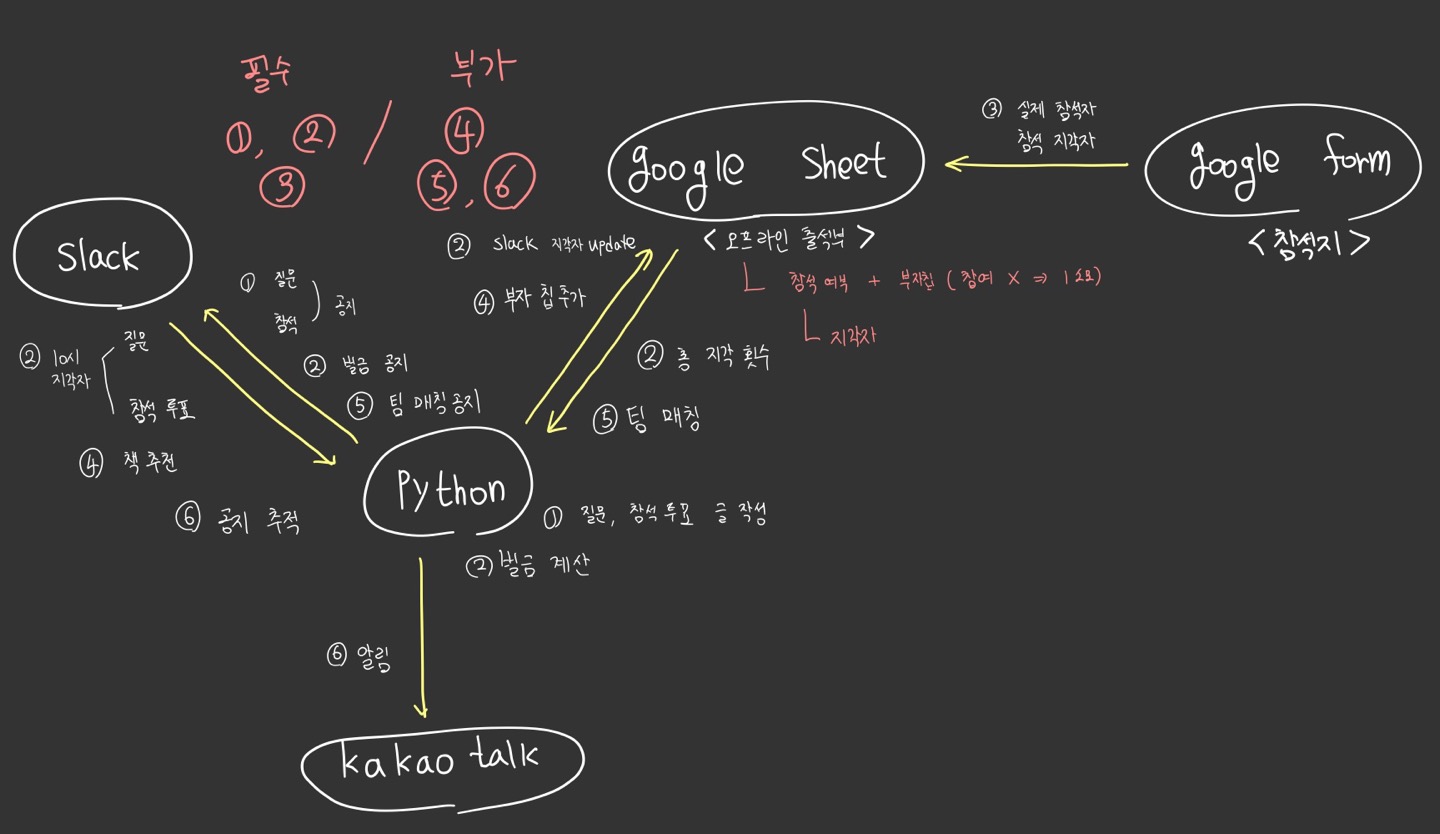 필수 부가
①, ② / ④
③ ⑤, ⑥
③ 실제 참석자
참석 지각자
google Sheet
google form
<오프라인 출석부>
<참석지>
└ 참석 여부 + 부자칩 (참여 X ⇒ 1소모)
└ 지각자
Slack
② slack 지각자 update
④ 부자 칩 추가
① 질문
참석
공지
② 벌금 공지
⑤ 팀 매칭 공지
② 10시
지각자
질문
참석 투표
④ 책 추천
⑥ 공지 추적
② 총 지각 횟수
⑤ 팀 매칭
Python
① 질문, 참석 투표 글 작성
② 벌금 계산
⑥ 알림
kakao talk